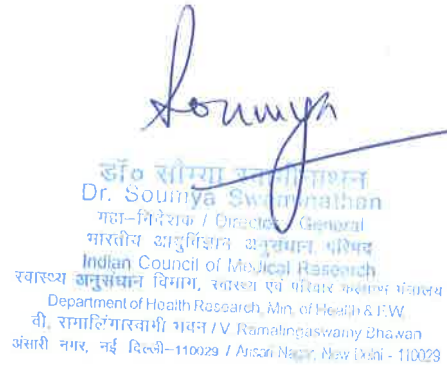 Soumya
डॉ० सौम्या स्वामीनाथन
Dr. Soumya Swaminathan
महा-निदेशक / Director General
भारतीय आयुर्विज्ञान अनुसंधान परिषद
Indian Council of Medical Research
स्वास्थ्य अनुसंधान विभाग, स्वास्थ्य एवं परिवार कल्याण मंत्रालय
Department of Health Research, Min. of Health & F.W.
वी. रामालिंगास्वामी भवन / V Ramalingaswamy Bhawan
अंसारी नगर, नई दिल्ली-110029 / Ansari Nagar, New Delhi - 110029